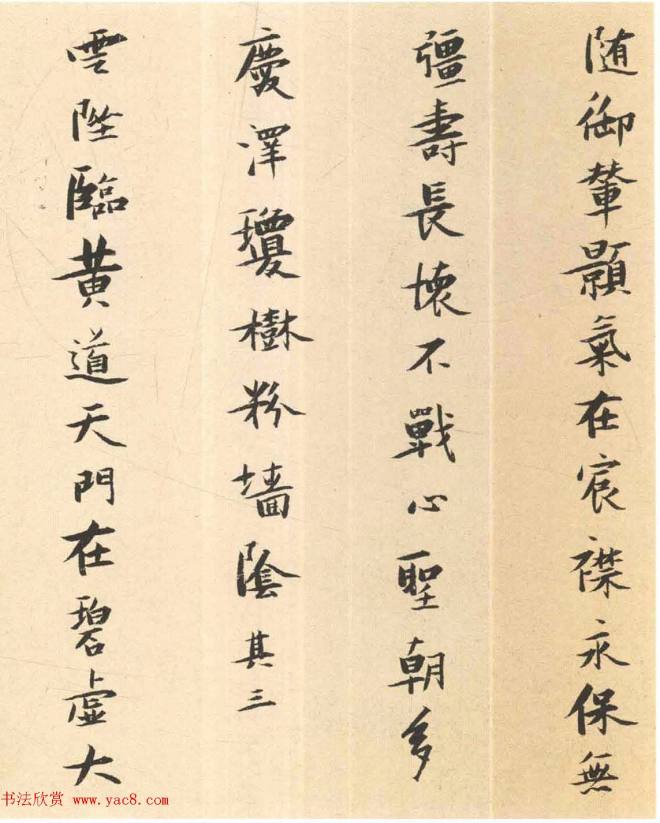 随御輦顥氣在宸襟永保無
彊壽長懷不戰心聖朝多
慶澤瓊樹粉墻陰其三
雲陛臨黃道天門在碧虛大
书法欣赏 www.yac8.com